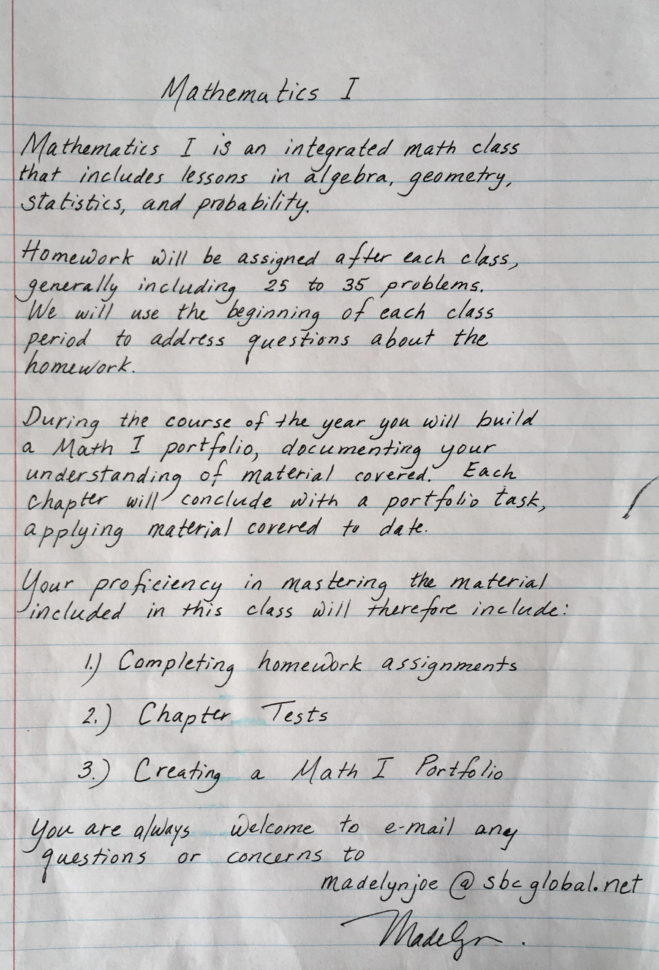 Mathematics I
Mathematics I is an integrated math class
that includes lessons in algebra, geometry,
statistics, and probability.
Homework will be assigned after each class,
generally including 25 to 35 problems.
We will use the beginning of each class
period to address questions about the
homework.
During the course of the year you will build
a Math I portfolio, documenting your
understanding of material covered. Each
chapter will conclude with a portfolio task,
applying material covered to date.
Your proficiency in mastering the material
included in this class will therefore include:
1.) Completing homework assignments
2.) Chapter Tests
3.) Creating a Math I Portfolio
You are always welcome to e-mail any
questions or concerns to
madelynjoe@sbcglobal.net
Madelyn.